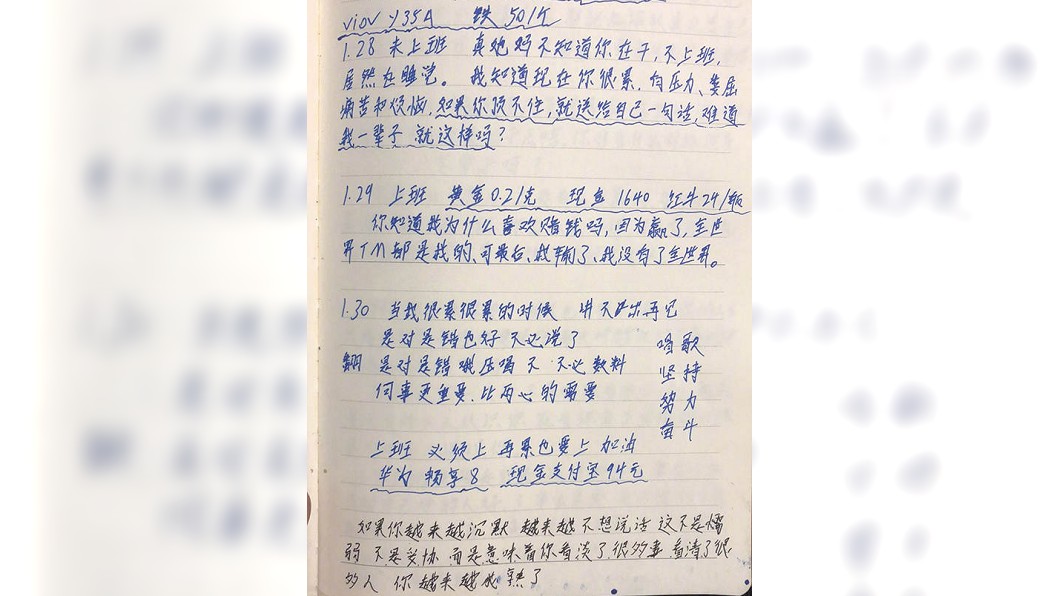 viov y35A 铁 50/个
1.28 未上班 真她妈不知道你在干,不上班,
居然在睡觉。 我知道现在你很累,有压力、委屈
痛苦和烦恼,如果你顶不住,就送给自己一句话,难道
我一辈子 就这样吗?
1.29 上班 黄金0.21克 现金 1640 红牛24/瓶
你知道我为什么喜欢赌钱吗,因为赢了,全世
界TM都是我的、可最后、我输了、我没有了全世界。
1.30 当我很累很累的时候 讲不出再见
是对是错也好 不必说了
翻 是对是错 压 不 不必数料
何事更重要、比两心的需要
唱歌
坚持
努力
奋斗
上班 必须上 再累也要上 加油
华为 畅享8 现金支付宝94元
如果你越来越沉默 越来越不想说话 这不是懦
弱 不是妥协 而是意味着你看淡了很多事 看清了很
多人 你越来越成熟了